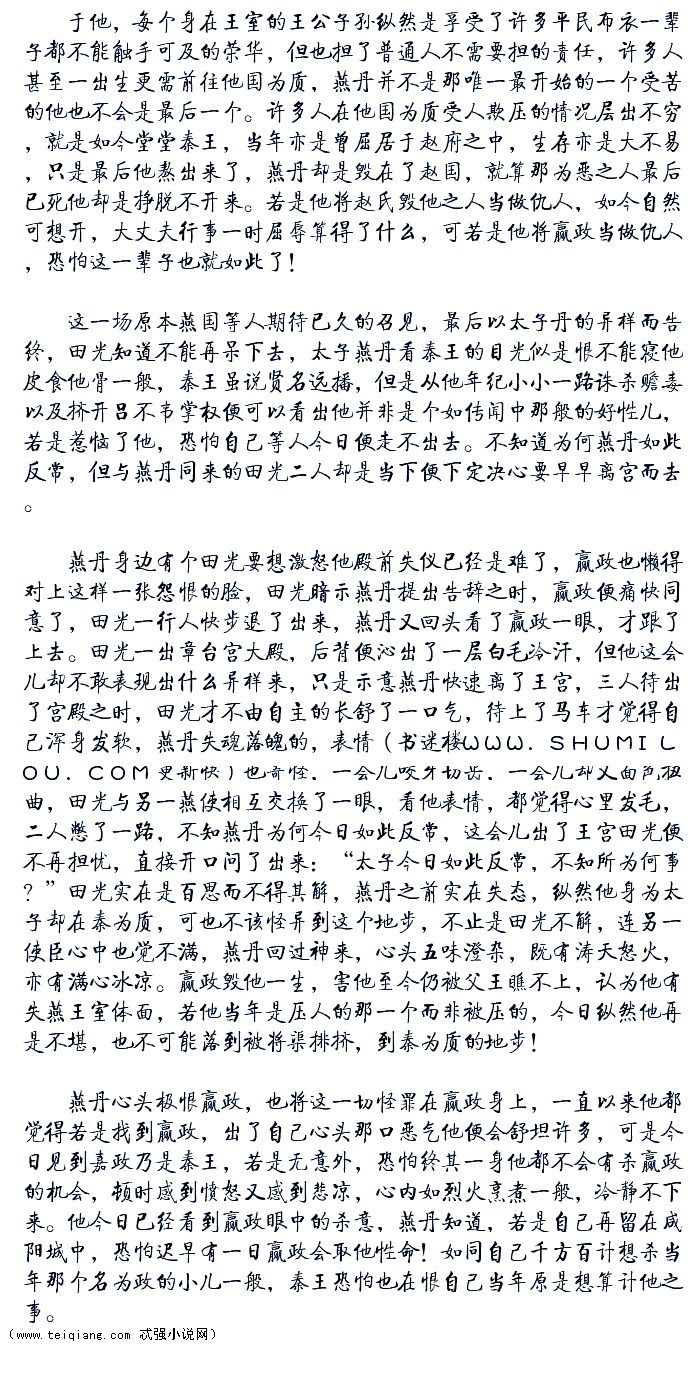 于他，每个身在王室的王公子孙纵然是享受了许多平民布衣一辈
子都不能触手可及的荣华，但也担了普通人不需要担的责任，许多人
甚至一出生更需前往他国为质，燕丹并不是那唯一最开始的一个受苦
的他也不会是最后一个。许多人在他国为质受人欺压的情况层出不穷
，就是如今堂堂秦王，当年亦是曾屈居于赵府之中，生存亦是大不易
，只是最后他熬出来了，燕丹却是毁在了赵国，就算那为恶之人最后
已死他却是挣脱不开来。若是他将赵氏毁他之人当做仇人，如今自然
可想开，大丈夫行事一时屈辱算得了什么，可若是他将嬴政当做仇人
，恐怕这一辈子也就如此了！
这一场原本燕国等人期待已久的召见，最后以太子丹的异样而告
终，田光知道不能再呆下去，太子燕丹看秦王的目光似是恨不能寝他
皮食他骨一般，秦王虽说贤名远播，但是从他年纪小小一路诛杀嫪毐
以及挤开吕不韦掌权便可以看出他并非是个如传闻中那般的好性儿，
若是惹恼了他，恐怕自己等人今日便走不出去。不知道为何燕丹如此
反常，但与燕丹同来的田光二人却是当下便下定决心要早早离宫而去
。
燕丹身边有个田光要想激怒他殿前失仪已经是难了，嬴政也懒得
对上这样一张怨恨的脸，田光暗示燕丹提出告辞之时，嬴政便痛快同
意了，田光一行人快步退了出来，燕丹又回头看了嬴政一眼，才跟了
上去。田光一出章台宫大殿，后背便沁出了一层白毛冷汗，但他这会
儿却不敢表现出什么异样来，只是示意燕丹快速离了王宫，三人待出
了宫殿之时，田光才不由自主的长舒了一口气，待上了马车才觉得自
己浑身发软，燕丹失魂落魄的，表情（书迷楼ＷＷＷ．ＳＨＵＭＩＬ
ＯＵ．ＣＯＭ更新快）也奇怪，一会儿咬牙切齿，一会儿却又面色扭
曲，田光与另一燕使相互交换了一眼，看他表情，都觉得心里发毛，
二人憋了一路，不知燕丹为何今日如此反常，这会儿出了王宫田光便
不再担忧，直接开口问了出来：“太子今日如此反常，不知所为何事
？”田光实在是百思而不得其解，燕丹之前实在失态，纵然他身为太
子却在秦为质，可也不该怪异到这个地步，不止是田光不解，连另一
使臣心中也觉不满，燕丹回过神来，心头五味澄杂，既有涛天怒火，
亦有满心冰凉。嬴政毁他一生，害他至今仍被父王瞧不上，认为他有
失燕王室体面，若他当年是压人的那一个而非被压的，今日纵然他再
是不堪，也不可能落到被将渠排挤，到秦为质的地步！
燕丹心头极恨嬴政，也将这一切怪罪在嬴政身上，一直以来他都
觉得若是找到嬴政，出了自己心头那口恶气他便会舒坦许多，可是今
日见到嘉政乃是秦王，若是无意外，恐怕终其一身他都不会有杀嬴政
的机会，顿时感到愤怒又感到悲凉，心内如烈火烹煮一般，冷静不下
来。他今日已经看到嬴政眼中的杀意，燕丹知道，若是自己再留在咸
阳城中，恐怕迟早有一日嬴政会取他性命！如同自己千方百计想杀当
年那个名为政的小儿一般，秦王恐怕也在恨自己当年原是想算计他之
事。
（www.teiqiang.com 忒强小说网）